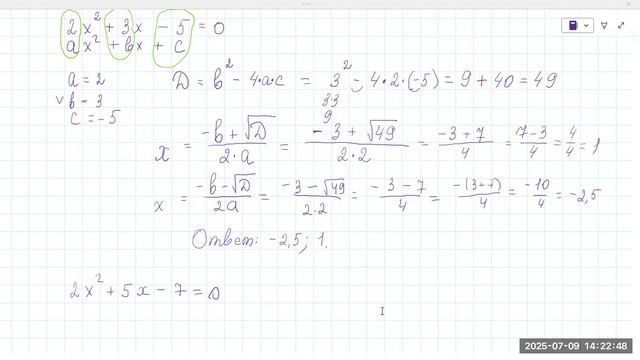 2x² + 3x - 5 = 0
ax² + bx + c
a = 2
b = 3
c = -5
D = b² - 4·a·c = 3² - 4·2·(-5) = 9 + 40 = 49
33
9
x = (-b + √D)/(2·a) = (-3 + √49)/(2·2) = (-3 + 7)/4 = (7-3)/4 = 4/4 = 1
x = (-b - √D)/(2a) = (-3 - √49)/(2·2) = (-3 - 7)/4 = (-(3+7))/4 = (-10)/4 = -2,5
Ответ: -2,5; 1.
2x² + 5x - 7 = 0
2025-07-09 14:22:48